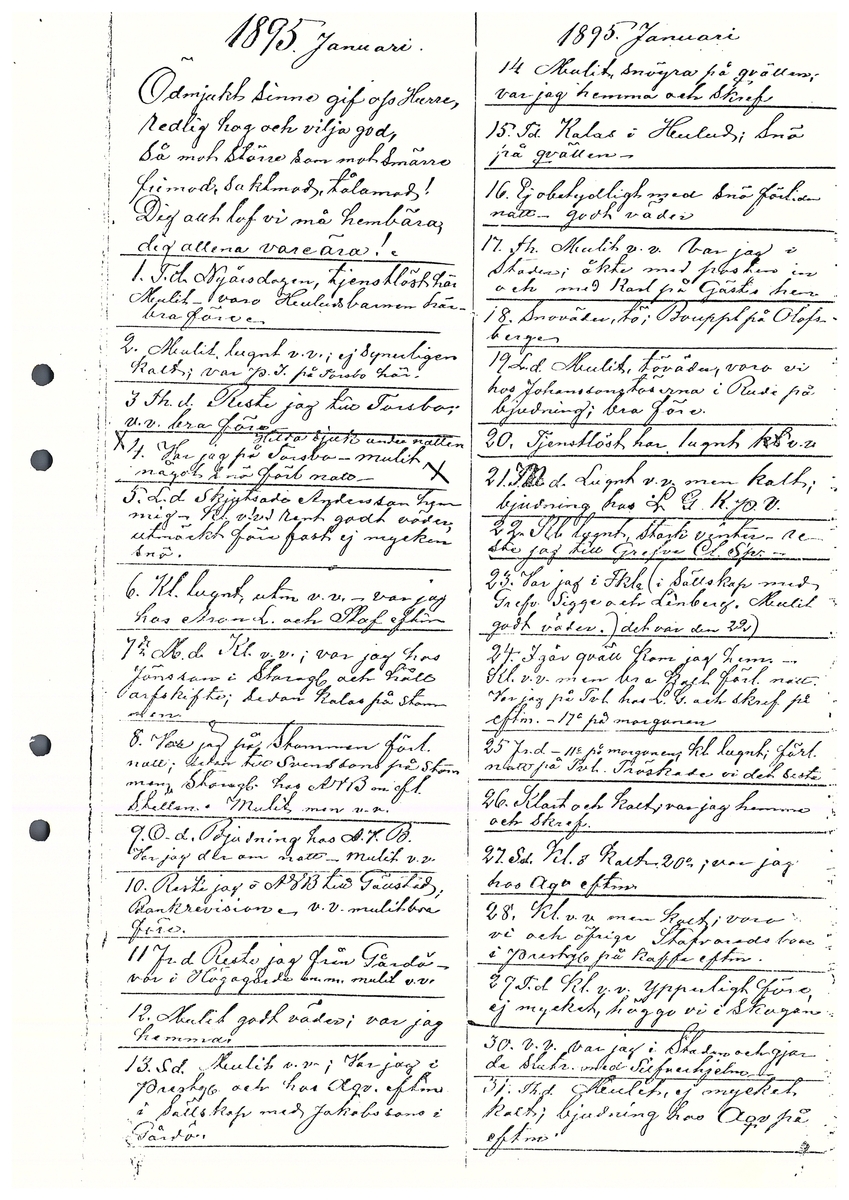 1895. Januari.
Ödmjukt sinne gif oss Herre,
redlig hog och vilja god,
Så mot större som mot smärre
frimod, saktmod, tålamod!
Dig allt lof vi må hembära,
dig allena vare ära!
1. T.d. Nyårsdagen, tjenstlöst här
Mulit – voro Heuludsbarnen här –
bra före
2. Mulit, lugnt v.v.; ej synnerligen
kallt; var p. J. på Torsbo här.
3 Th.d. Reste jag till Torsbo;
v.v. bra före
andra natten
4. Var jag på Torsbo – mulit
något snö förl natt –
5. L.d Skjutsade Andersson hem
mig – Kl. v.vd rent godt väder,
utmärkt före fast ej mycken
snö.
6. Kl. lugnt, utm v.v. – var jag
hos Aron L. och Staf eftm
7de M.d. Kl. v.v.; var jag hos
Jönsson i Storegb och hållt
arfskifte; sedan Kalas på Stom
men
8. Var jag på Stommen förl.
natt; sedan till Svenssons på Stom
men, Storegb hos A&B
Mulit men v.v.
9. O-d. Bjudning hos A. & B.
Var jag der om natt – mulit v.v.
10. Reste jag o A&B till Gäustad,
Bankrevision v.v. mulit bra
före.
11 Fr.d Reste jag från Gårdö –
var i Högagärde mulit v.v.
12. Mulit godt väder; var jag
hemma
13. Sd. Mulit v.v.; Var jag i
Prestgb och hos Agv. eftm
i sällskap med Jakobssons i
Gårdö.
1895. Januari
14 Mulit, snögra på qvällen;
var jag hemma och skref
15. Td. Kalas i Heulud; Snö
på qvällen –
16. Ej obetydligt med snö förlidn
natt – godt väder
17. Th. Mulit v.v. Var jag i
Staden; åkte med posten in
och med Karl på Gästis hem
18. Snöväder, tö; Bouppt på Olofs-
bergen
19 L.d. Mulit, töväder, voro vi
hos Johanssons töserna i Rude på
bjudning; bra före.
20. Tjenstlöst har lugnt v.v
21. M d. Lugnt v.v. men kallt;
bjudning hos L. G. K. på V.
22. Kl lugnt, stark vinter – re-
ste jag till Grefve Cl. Sp. –
23. Var jag i Fkla (i sällskap med
Grefv. Sigge och Lönberg. Mulit
godt väder.) det var den 22)
24. I går qväll kom jag hem. –
Kl. v.v. men bra kallt förl. natt.
Var jag på Tvl. hos L. G. och skref på
eftm. – 17° på morgonen
25 Fr.d – 11° på morgonen, kl lugnt; förl.
natt på Tvl. Tröskade vi det sista
26. Klart och kallt; var jag hemma
och skref.
27. Sd. Kl. & kallt – 20°; var jag
hos Agv eftm
28. Kl. v.v men kallt; voro
vi och öfrige Stafvaredsboar
i Prestgb på kaffe eftm.
29. T.d Kl. v.v. Ypperligt före,
ej mycket, höggo vi i Skogen
30. v.v. var jag i Staden och gjor
de slut. med Silfverhjelm –
31. Th.d Mulit, ej mycket
kallt; bjudning hos Agv på
eftm